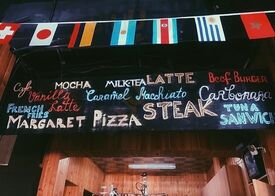 Cafe MOCHA MILKTEA LATTE Beef BURGER
Vanilla Latte Caramel Macchiato Carbonara
FRENCH FRIES STEAK TUNA SANWICH
MARGARET PIZZA